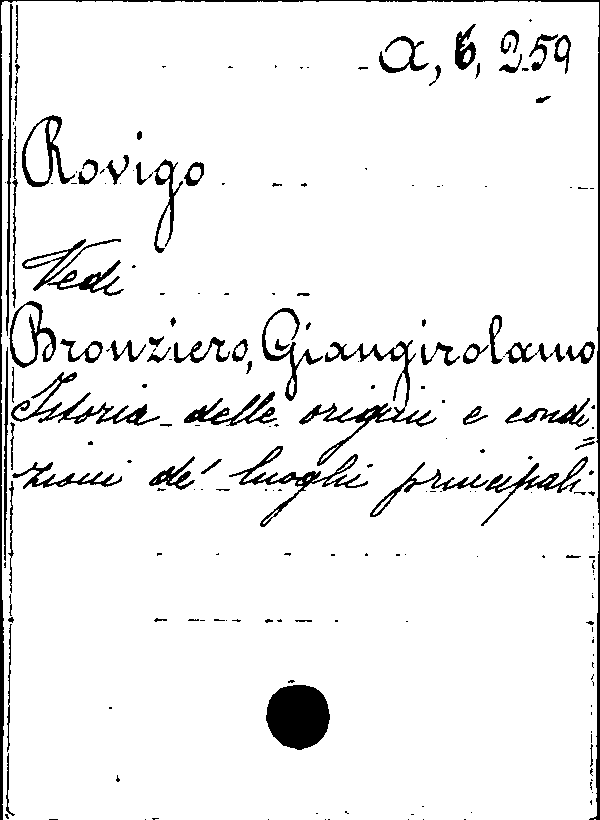 a, 6, 259
Rovigo
Vedi
Bronziero, Giangirolamo
Istoria delle origini e condi=
zioni de' luoghi principali